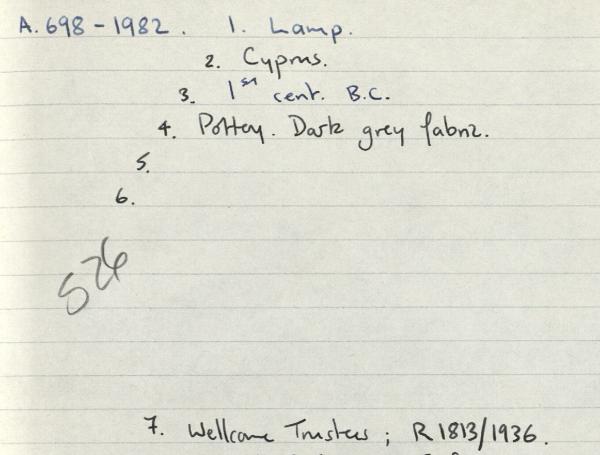 A. 698 - 1982. 1. Lamp.
2. Cyprus.
3. 1st cent. B.C.
4. Pottery. Dark grey fabric.
5.
6.
526
7. Wellcome Trustees ; R 1813/1936.